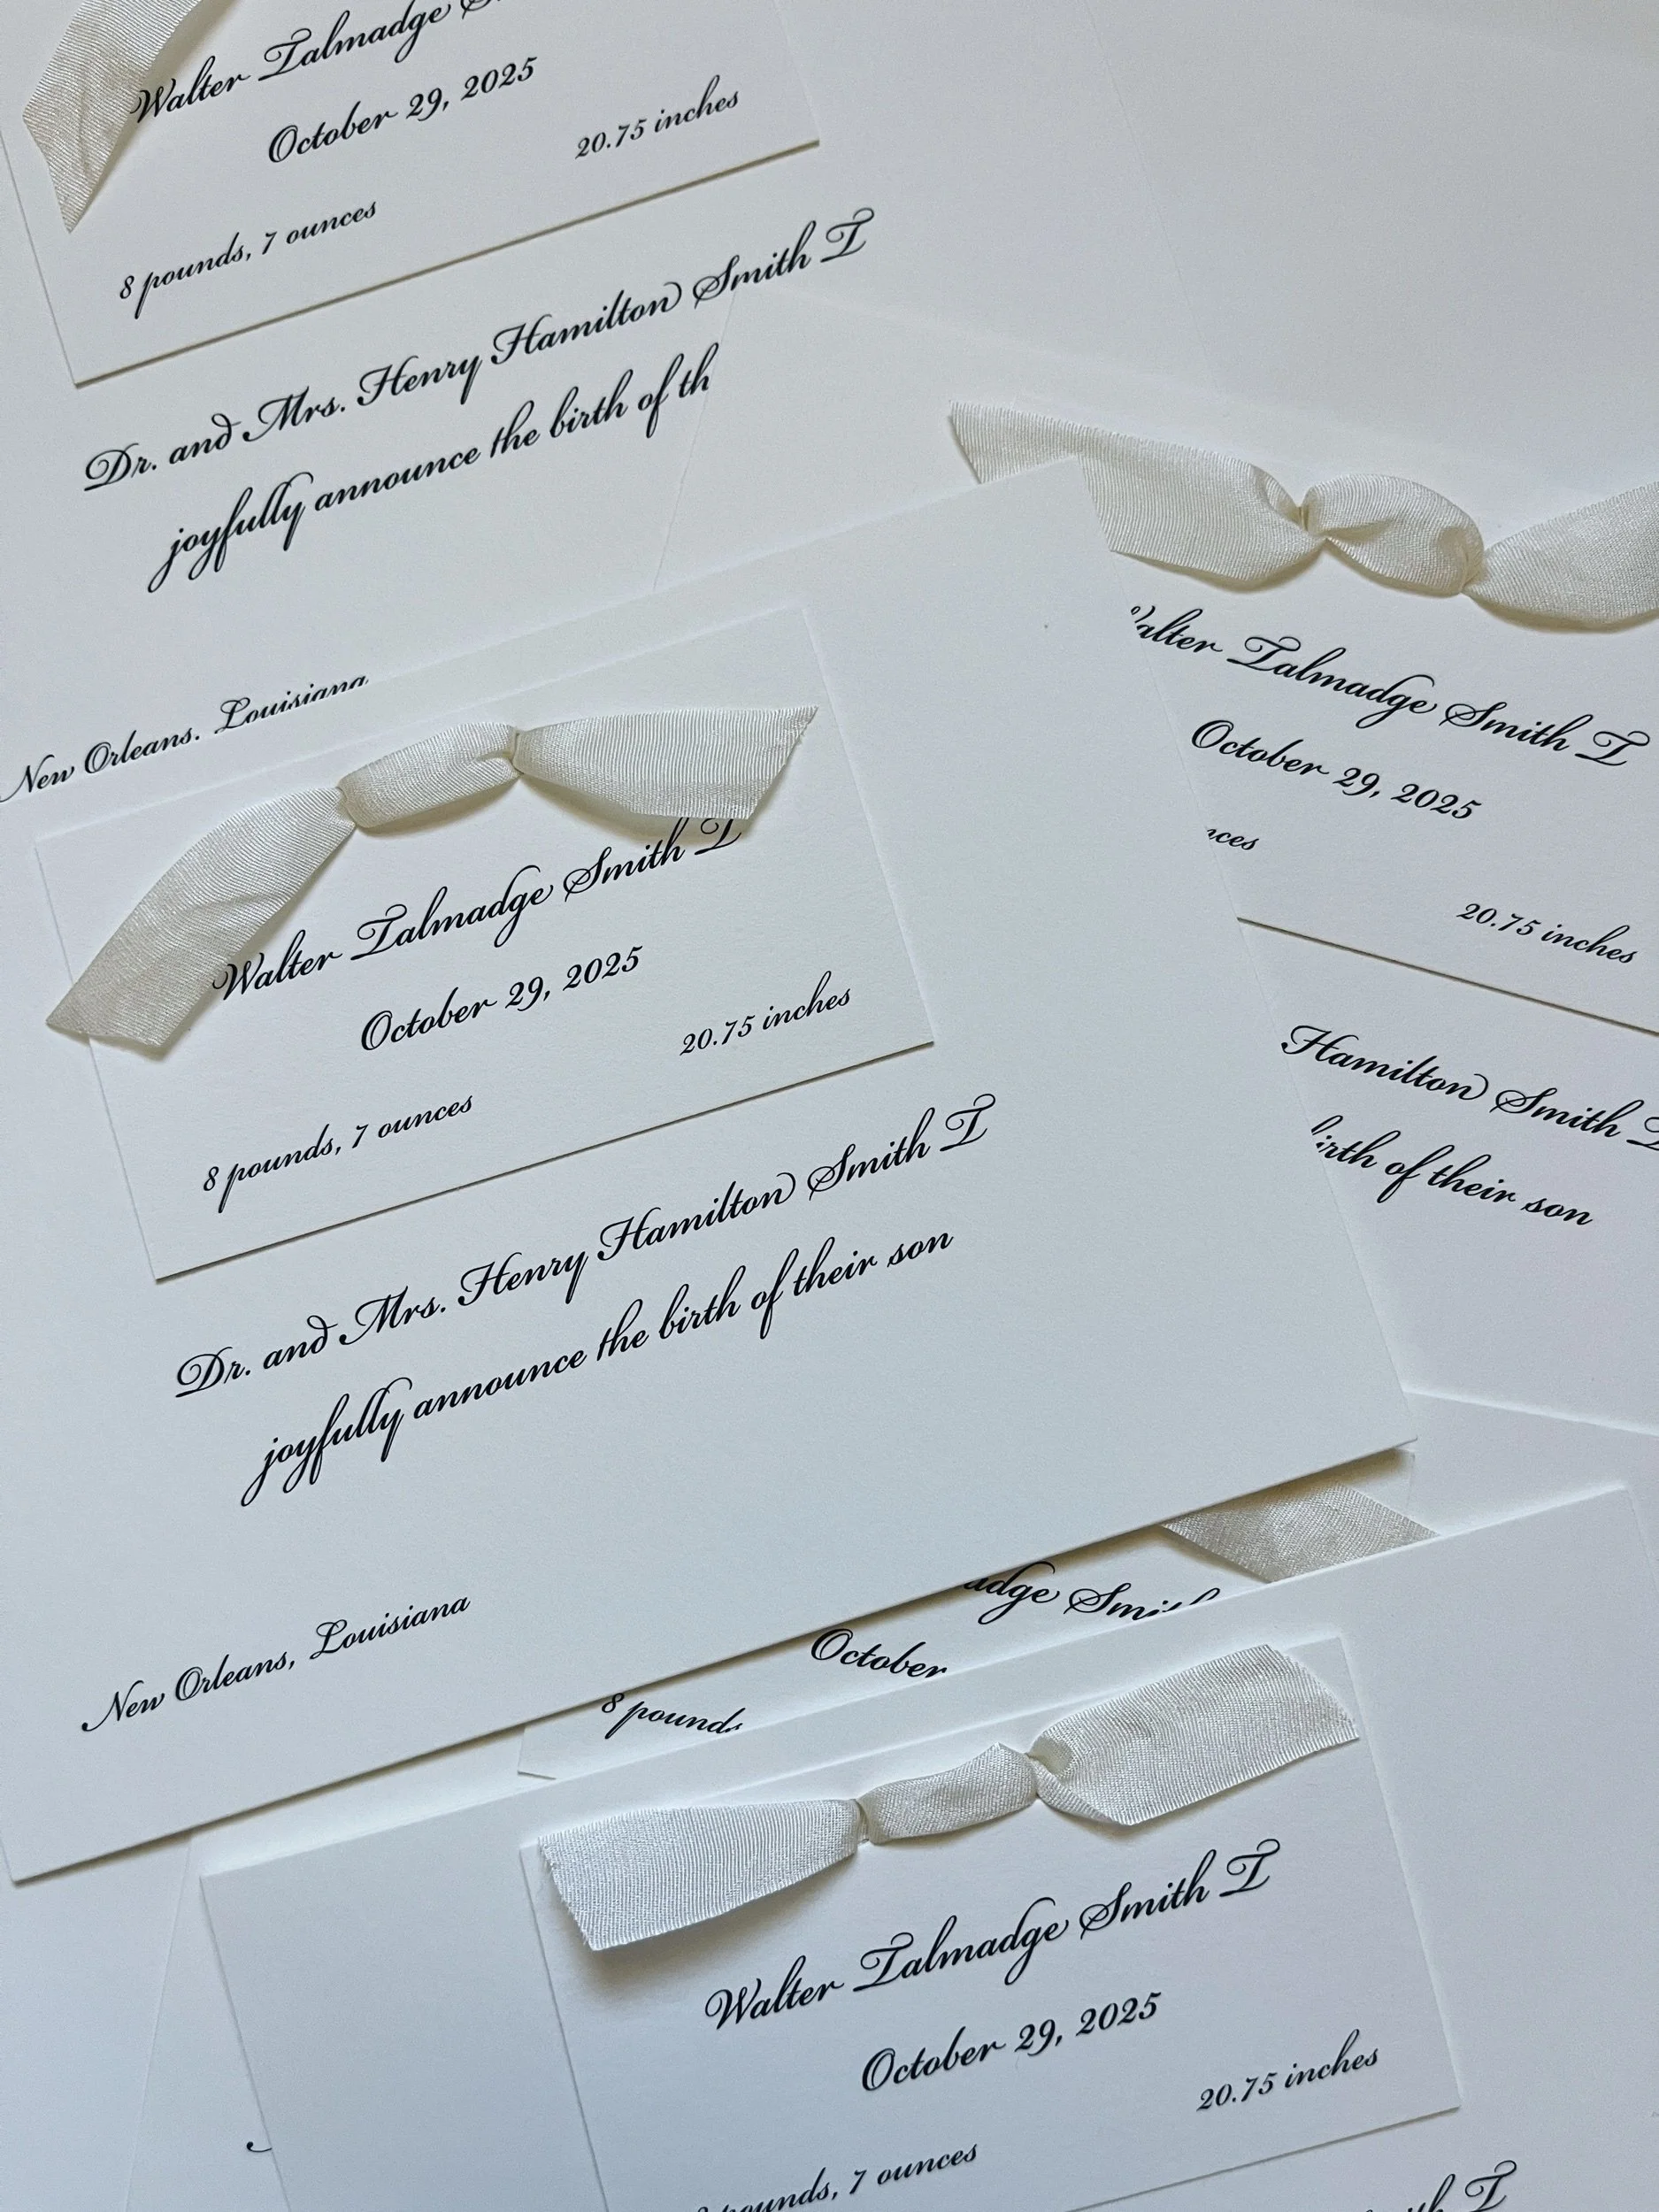 Walter Talmadge S
October 29, 2025
20.75 inches
8 pounds, 7 ounces
Dr. and Mrs. Henry Hamilton Smith I
joyfully announce the birth of th
New Orleans, Louisiana
Walter Talmadge Smith I
October 29, 2025
20.75 inches
8 pounds, 7 ounces
Dr. and Mrs. Henry Hamilton Smith I
joyfully announce the birth of their son
New Orleans, Louisiana
alter Talmadge Smith I
October 29, 2025
nces
20.75 inches
Hamilton Smith I
birth of their son
adge Smith
October
8 pounds
Walter Talmadge Smith I
October 29, 2025
20.75 inches
pounds, 7 ounces
ith I